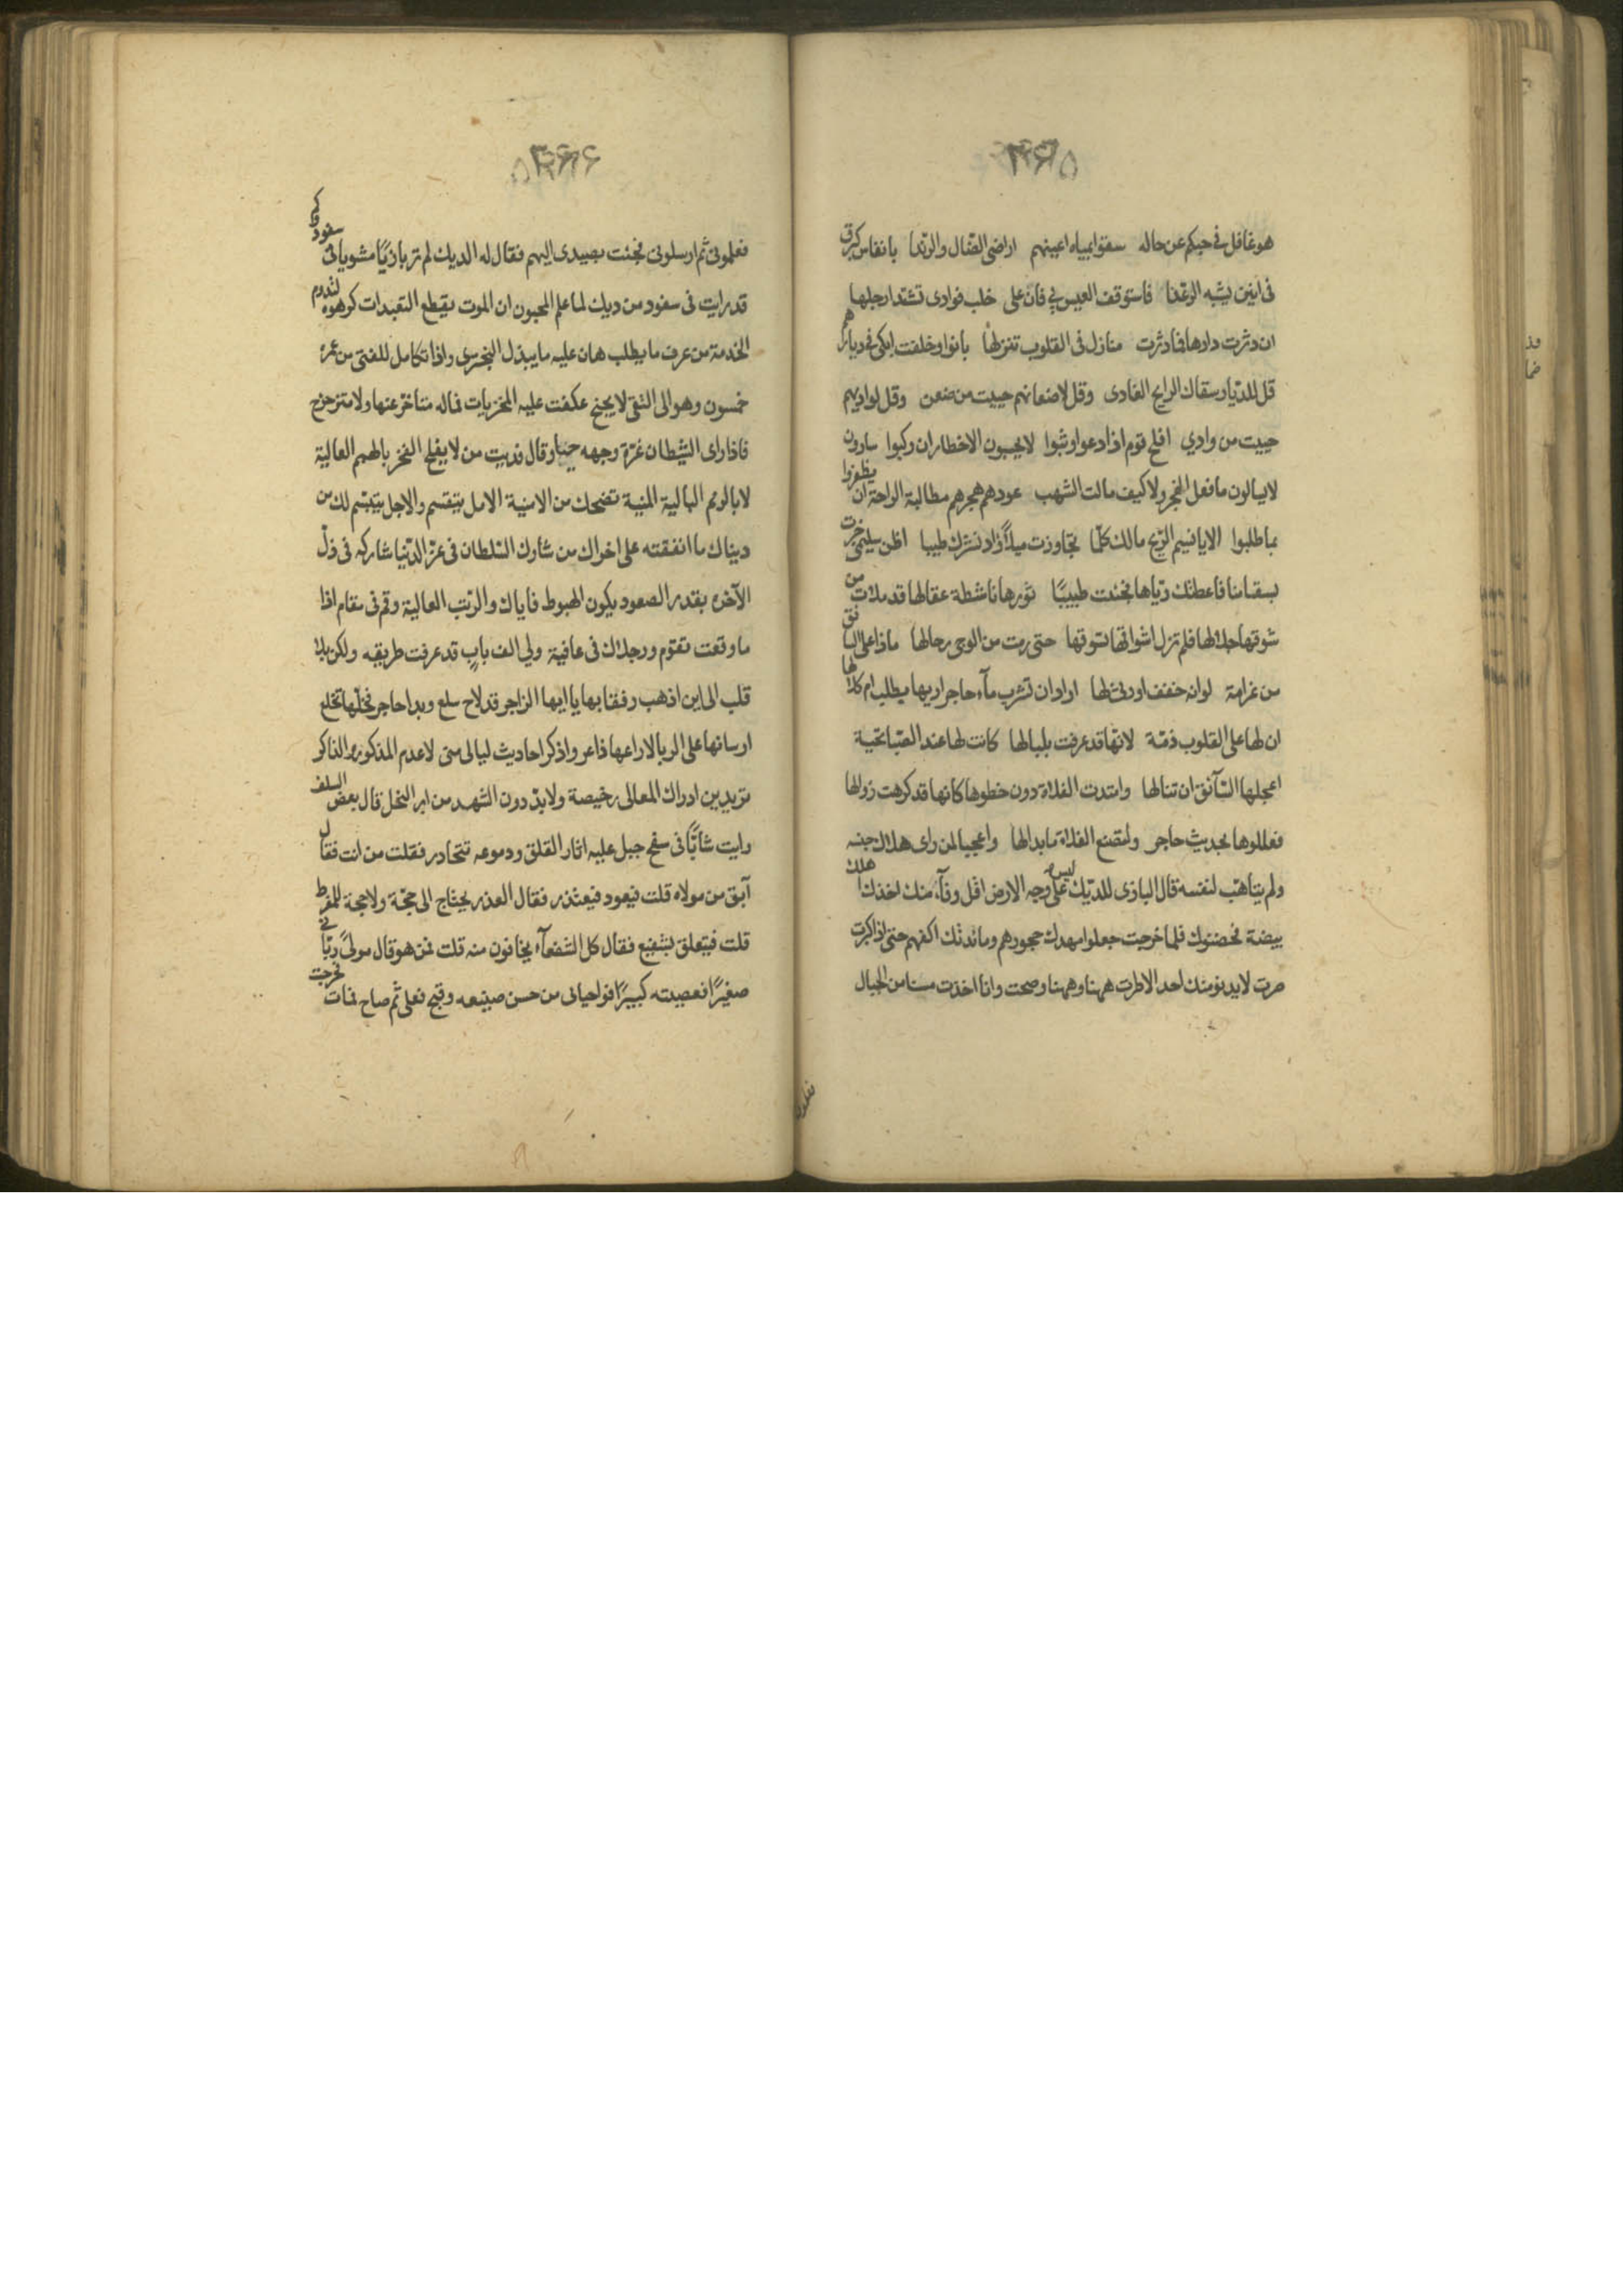 ۳۶۵
هو غافل فى حبكم عن حاله سقوا بمياه اعينهم اراضى الضال والرندا بانفاس كبرق
فى انين يشبه الرعدا فاستوقف العيس لى فان على خلب فوادى تشد ارجلها
ان دثرت دارها فما دثرت منازل فى القلوب تنزلها بانوا وخلفت ابكى فى ديارهم
قل للديار سقاك الرايح الغادى وقل لاضعانهم حييت من ضعن وقل لواديهم
حييت من وادي افلح قوم اذا دعوا وثبوا لا يحسبون الاخطار ان ركبوا سارون
لا يسالون ما فعل الفجر ولا كيف مالت الشهب عودهم هجرهم مطالبة الراحة ان يظفروا
بما طلبوا الا يا نسيم الريح مالك كلما تجاوزت ميلاً زاد نشرك طيبا اظن سليمى خبرت
بسقامنا فاعطتك رياها فجئت طبيبًا ثورها ناشطة عقالها قد ملات من
شوقها جلالها فلم تزل اشواقها تسوقها حتى رمت من الوجى رحالها ماذا على الناقة
من غرامة لو انه خفف او رثى لها اراد ان تشرب مآء حاجر اريها يطلب ام كلالها
ان لها على القلوب ذمّة لانها قد عرفت بلبالها كانت لها عند الصبا تحية
اعجلها السآئق ان تنالها وامتدت الفلاة دون خطوها كانها قد كرهت زوالها
فعللوها بحديث حاجر ولتصنع الفلاة ما بدالها واعجبا لمن راى هلاك جنسه
ولم يتاهب لنفسه قال البازى للديك ليس على وجه الارض اقل وفآء منك اخذك اهلك
بيضة فحضنوك فلما خرجت جعلوا مهدك حجورهم ومائدتك اكفهم حتى اذا كبرت
صرت لا يدنو منك احد الا طرت ههنا وههنا وصحت وانا اخذت مسنا من الجبال
۳۶۶
فعلمونى ثم ارسلونى فجئت بصيدى اليهم فقال له الديك لم تر بازيًا مشويا فى سفود وكم
قد رايت فى سفود من ديك لما علم المحبون ان الموت يقطع التعبدات كرهوه لتدوم
الخدمة من عرف ما يطلب هان عليه ما يبذل البخترى واذا تكامل للفتى من عمره
خمسون وهو الى التقى لا يجنح عكفت عليه المخزيات فماله متاخر عنها ولا متزحزح
فاذا راى الشيطان غرة وجهه حيا وقال فديت من لا يفلح الفخر بالهمم العالية
لا بالرمم البالية المنية تضحك من الامنية الامل يتقسم والاجل يتبسم لك من
ديناك ما انفقته على اخراك من شارك السلطان فى عز الدنيا شاركه فى ذل
الآخره بقدر الصعود يكون الهبوط فاياك والرتب العالية وقم فى مقام اذا
ما وقعت تقوم ورجلاك فى عافية ولي الف بابٍ قد عرفت طريقه ولكن بلا
قلب الى اين اذهب رفقا بها يا ايها الزاجر قد لاح سلع وبدا حاجر فخلها تخلع
ارسانها على الربا لا راعها ذاعر واذكر احاديث ليالى منى لا عدم المذكور والذاكر
تريدين ادراك المعالى رخيصة ولا بد دون الشهد من ابر النحل قال بعض السلف
رايت شابًا فى سفح جبل عليه اثار القلق ودموعه تتحادر فقلت من انت فقال
آبق من مولاه قلت فيعود فيعتذر فقال العذر يحتاج الى حجّة ولا حجة للمفرط
قلت فيتعلق بشفيع فقال كل الشفعآء يخافون منه قلت فمن هو قال مولىً ربانى
صغيرًا فعصيته كبيرًا فواحيائى من حسن صنيعه وقبح فعلى ثم صاح فمات فخرجت